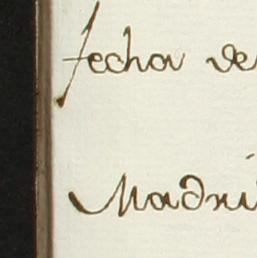 fecha de
Madri